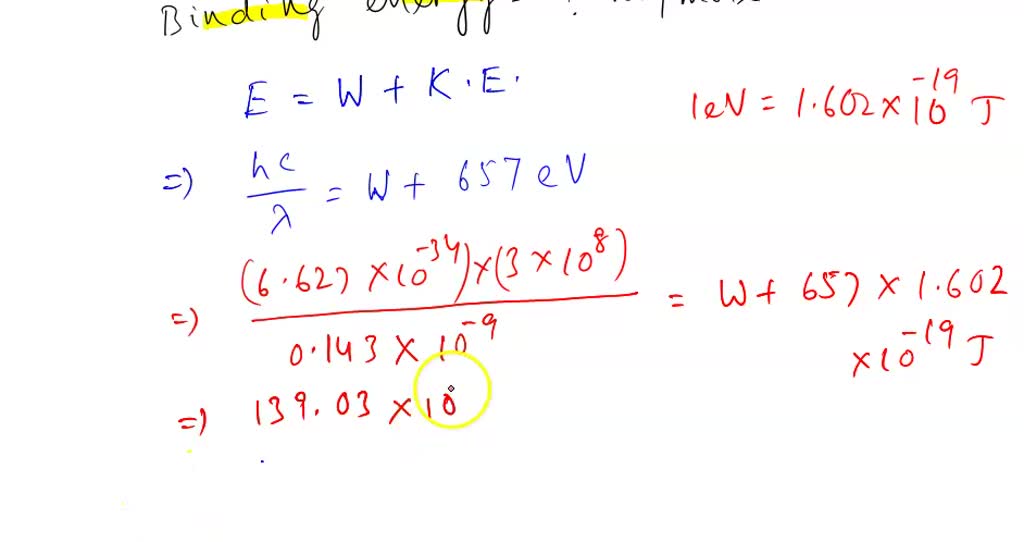 Binding energy = ?
E = W + K.E.
1eV = 1.602 × 10^-19 J
=) hc/λ = W + 657 eV
=) (6.627 × 10^-34) × (3 × 10^8) / 0.143 × 10^-9 = W + 657 × 1.602 × 10^-19 J
=) 139.03 × 10